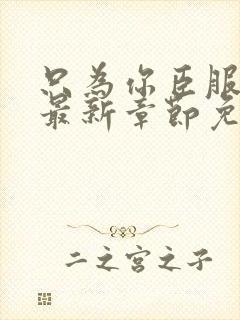 只為你臣服
最新章節免
二之宮之子